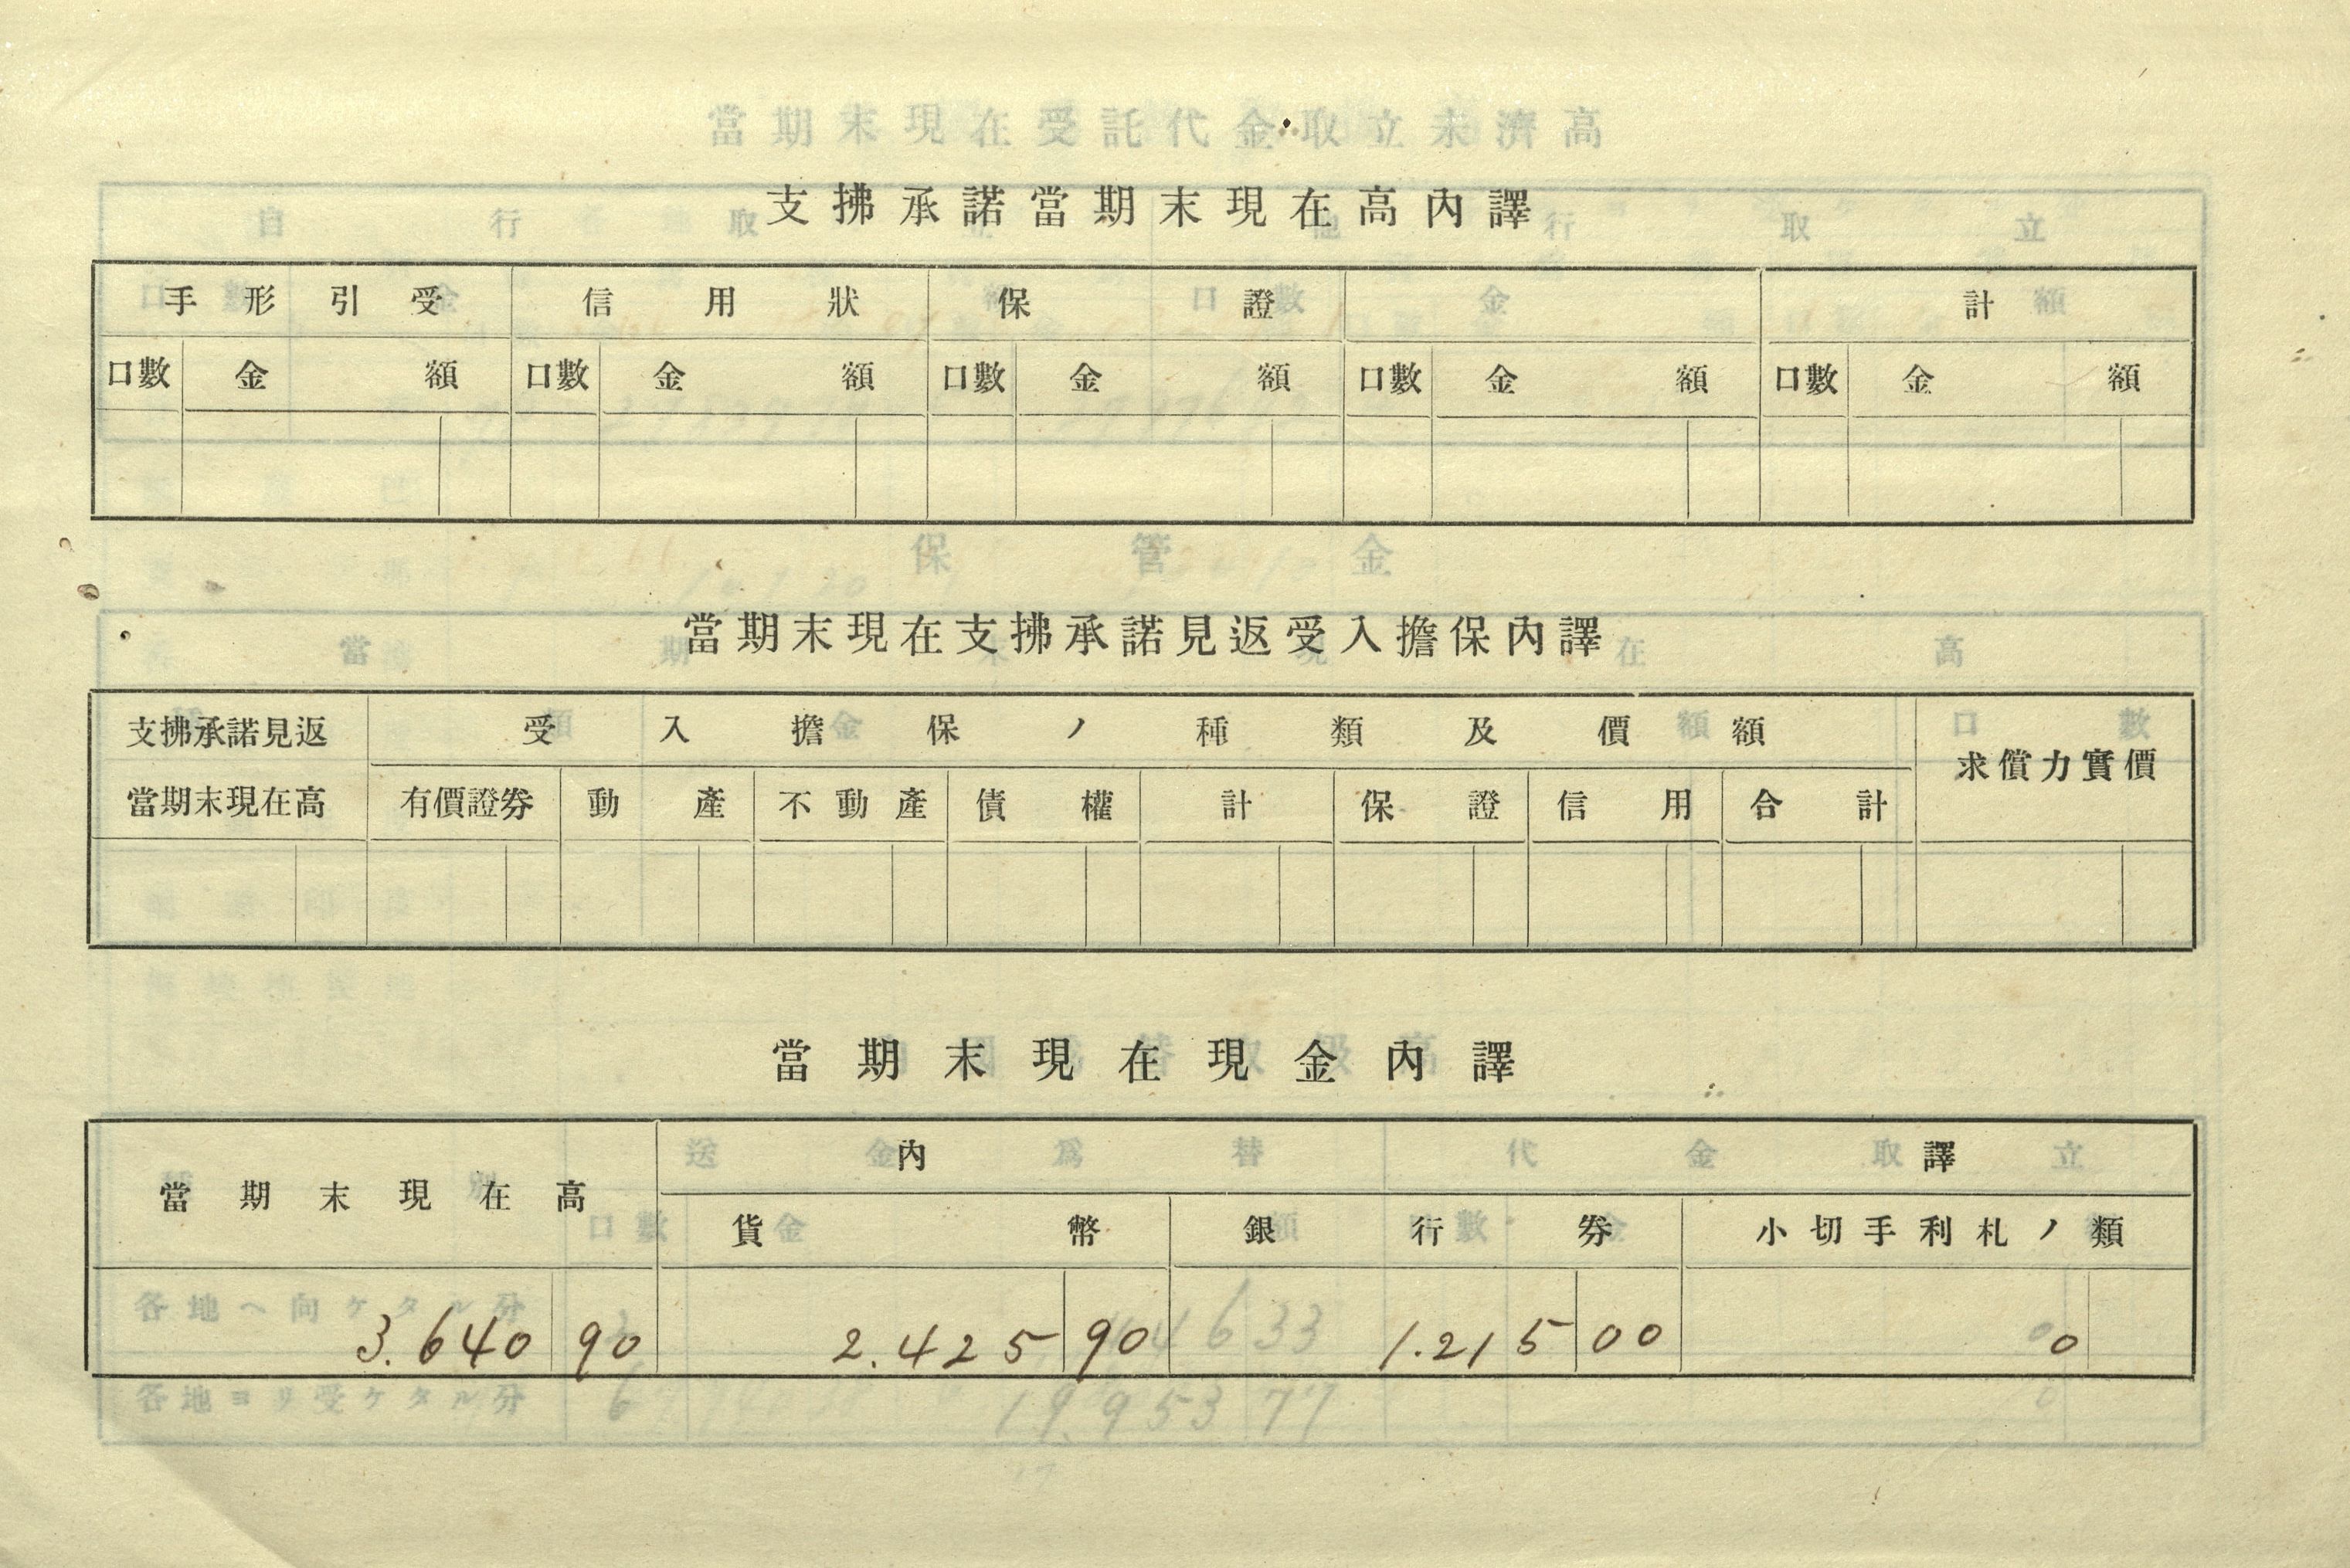 支拂承諾當期末現在高內譯
手形引受 信用狀 保證 計
口數 金額 口數 金額 口數 金額 口數 金額 口數 金額
當期末現在支拂承諾見返受入擔保內譯
支拂承諾見返 受入擔保ノ種類及價額 求償力實價
當期末現在高 有價證券 動產 不動產 債權 計 保證 信用 合計
當期末現在現金內譯
當期末現在高 內譯
貨幣 銀行券 小切手利札ノ類
3.640 90 2.425 90 1.215 00 0